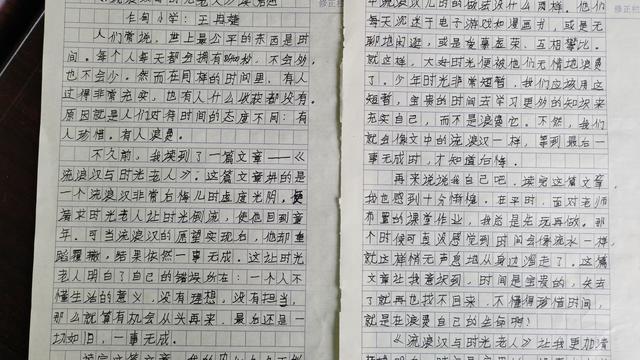 《流浪汉与时光老人》读后感
小学:王
人们常说,世上最公平的东西是时
间。每个人每天都会拥有86400秒,不会多
也不会少。然而在同样的时间里,有人
过得非常充实,也有人什么收获都没有。
原因就是人们对待时间的态度不同:有
人珍惜,有人浪费。
不久前,我读到了一篇文章——《
流浪汉与时光老人》。这篇文章讲的是
一个流浪汉非常后悔儿时虚度光阴,便
请求时光老人让时光倒流,使他回到童
年。可当流浪汉的愿望实现后,他却重
蹈覆辙,结果依然一事无成。这让时光
老人明白了自己的错误所在:一个人不
懂生活的意义,没有理想,没有担当,
那么就算有机会从头再来,最后还是一
切如旧,一事无成。
读完这篇文章,我的内心久久不能
修正栏
中流浪汉儿时的做法没什么两样。他们
每天沉迷于电子游戏和漫画书,或是无
聊地闲逛,或是爱慕虚荣、互相攀比。
就这样,大好时光便被他们无情地浪费
了。少年时光非常短暂,我们应该用这
短暂、宝贵的时间去学习更多的知识来
充实自己,而不是浪费它。不然,我们
就会像文中的流浪汉一样,等到最后一
事无成时,才知道后悔。
再来说说我自己吧。读完这篇文章
我也感到十分惭愧。在平时,面对老师
布置的课堂作业,我总是先玩再做。那
个时候可真没感觉到时间会像流水一样
就这样悄无声息地从身边溜走了。这篇
文章让我意识到,时间是宝贵的,失去
了就再也找不回来,不懂得珍惜时间,
就是在浪费自己的生命啊!
《流浪汉与时光老人》让我更加清
修正栏